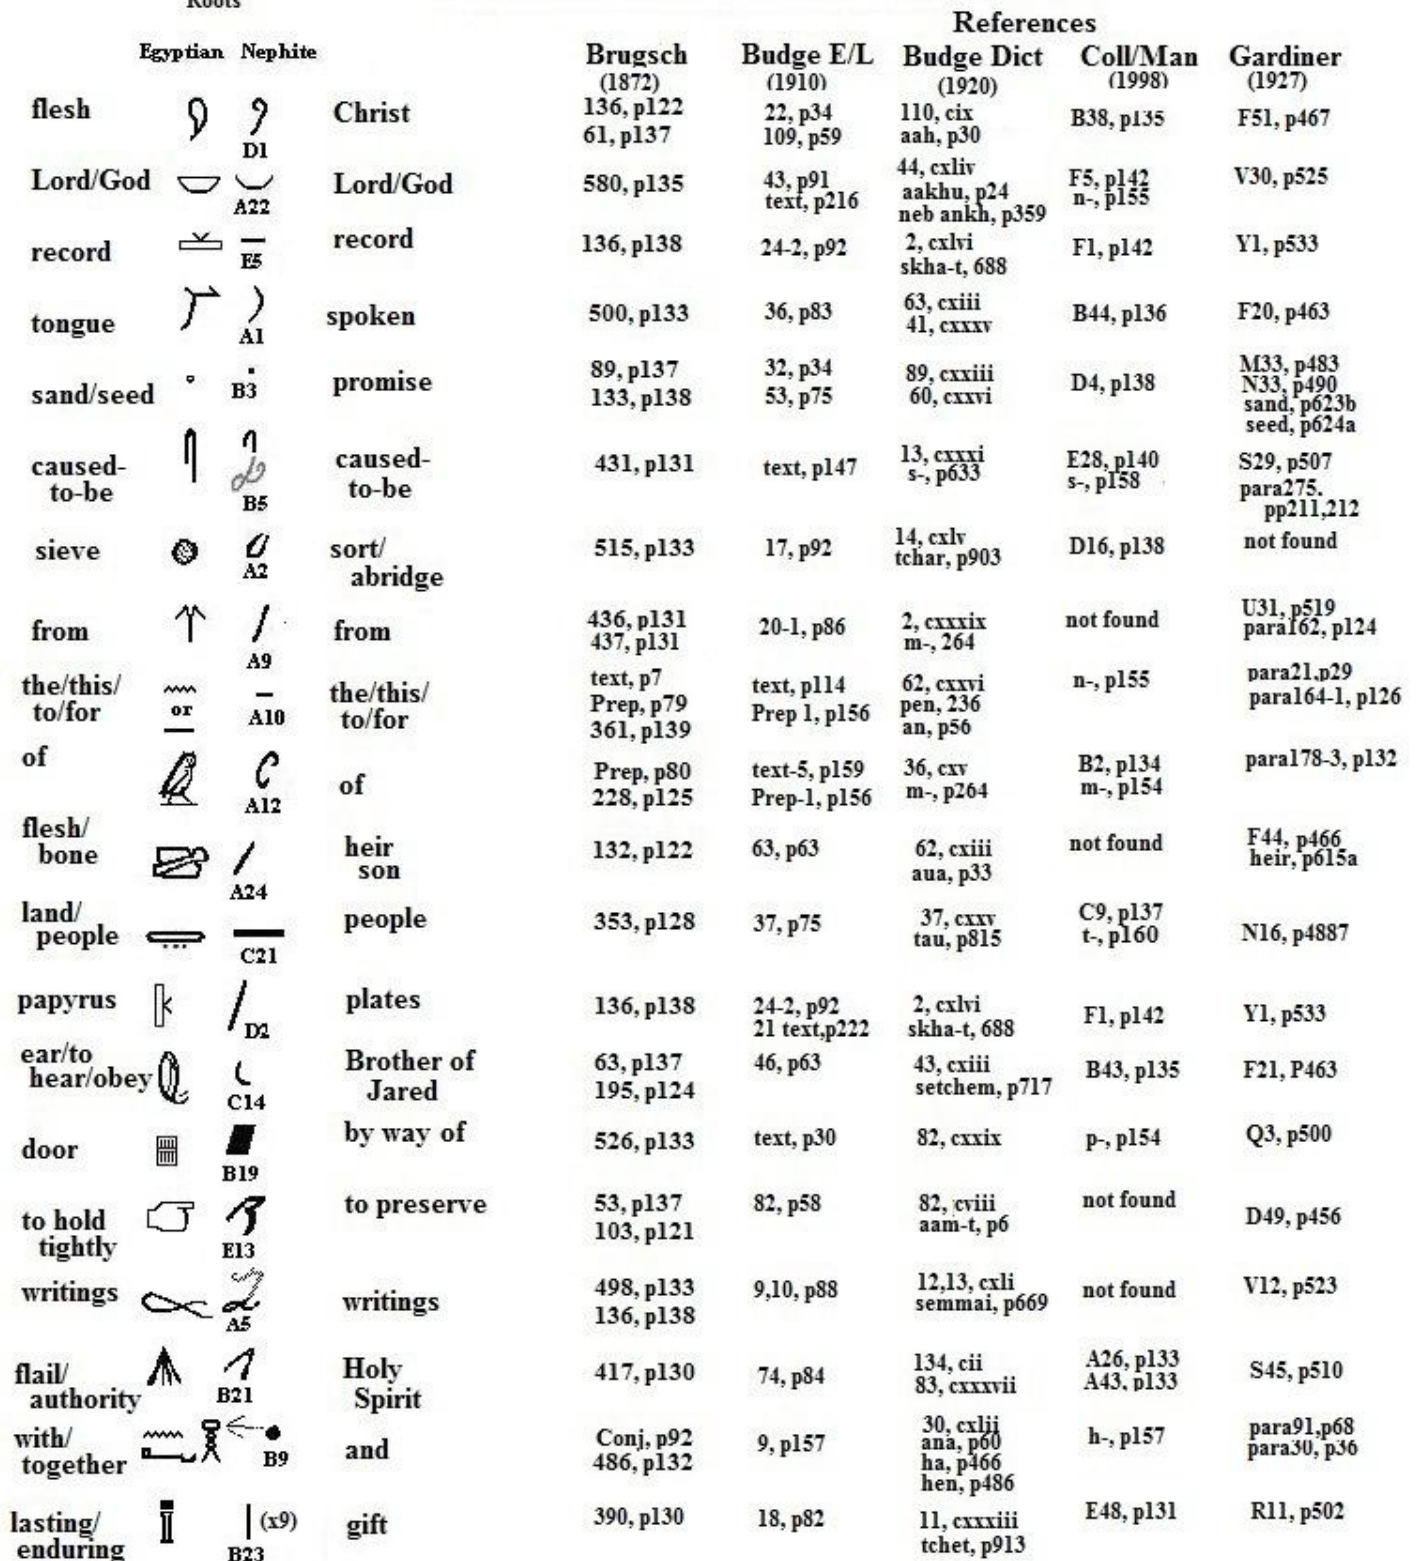 Roots
References
Egyptian Nephite Brugsch Budge E/L Budge Dict Coll/Man Gardiner
(1872) (1910) (1920) (1998) (1927)
flesh D1 Christ 136, p122 61, p137 22, p34 109, p59 110, cix aah, p30 B38, p135 F51, p467
Lord/God A22 Lord/God 580, p135 43, p91 text, p216 44, cxliv aakhu, p24 neb ankh, p359 F5, p142 n-, p155 V30, p525
record E5 record 136, p138 24-2, p92 2, cxlvi skha-t, 688 F1, p142 Y1, p533
tongue A1 spoken 500, p133 36, p83 63, cxiii 41, cxxxv B44, p136 F20, p463
sand/seed B3 promise 89, p137 133, p138 32, p34 53, p75 89, cxxiii 60, cxxvi D4, p138 M33, p483 N33, p490 sand, p623b seed, p624a
caused-to-be B5 caused-to-be 431, p131 text, p147 13, cxxxi s-, p633 E28, p140 s-, p158 S29, p507 para275. pp211,212
sieve A2 sort/ abridge 515, p133 17, p92 14, cxlv tchar, p903 D16, p138 not found
from A9 from 436, p131 437, p131 20-1, p86 2, cxxxix m-, 264 not found U31, p519 para162, p124
the/this/ to/for or A10 the/this/ to/for text, p7 Prep, p79 361, p139 text, p114 Prep 1, p156 62, cxxvi pen, 236 an, p56 n-, p155 para21,p29 para164-1, p126
of A12 of Prep, p80 228, p125 text-5, p159 Prep-1, p156 36, cxv m-, p264 B2, p134 m-, p154 para178-3, p132
flesh/ bone A24 heir son 132, p122 63, p63 62, cxiii aua, p33 not found F44, p466 heir, p615a
land/ people C21 people 353, p128 37, p75 37, cxxv tau, p815 C9, p137 t-, p160 N16, p4887
papyrus D2 plates 136, p138 24-2, p92 21 text,p222 2, cxlvi skha-t, 688 F1, p142 Y1, p533
ear/to hear/obey C14 Brother of Jared 63, p137 195, p124 46, p63 43, cxiii setchem, p717 B43, p135 F21, P463
door B19 by way of 526, p133 text, p30 82, cxxix p-, p154 Q3, p500
to hold tightly E13 to preserve 53, p137 103, p121 82, p58 82, cviii aam-t, p6 not found D49, p456
writings A5 writings 498, p133 136, p138 9,10, p88 12,13, cxli semmai, p669 not found V12, p523
flail/ authority B21 Holy Spirit 417, p130 74, p84 134, cii 83, cxxxvii A26, p133 A43, p133 S45, p510
with/ together B9 and Conj, p92 486, p132 9, p157 30, cxlii ana, p60 ha, p466 hen, p486 h-, p157 para91,p68 para30, p36
lasting/ enduring (x9) B23 gift 390, p130 18, p82 11, cxxxiii tchet, p913 E48, p131 R11, p502